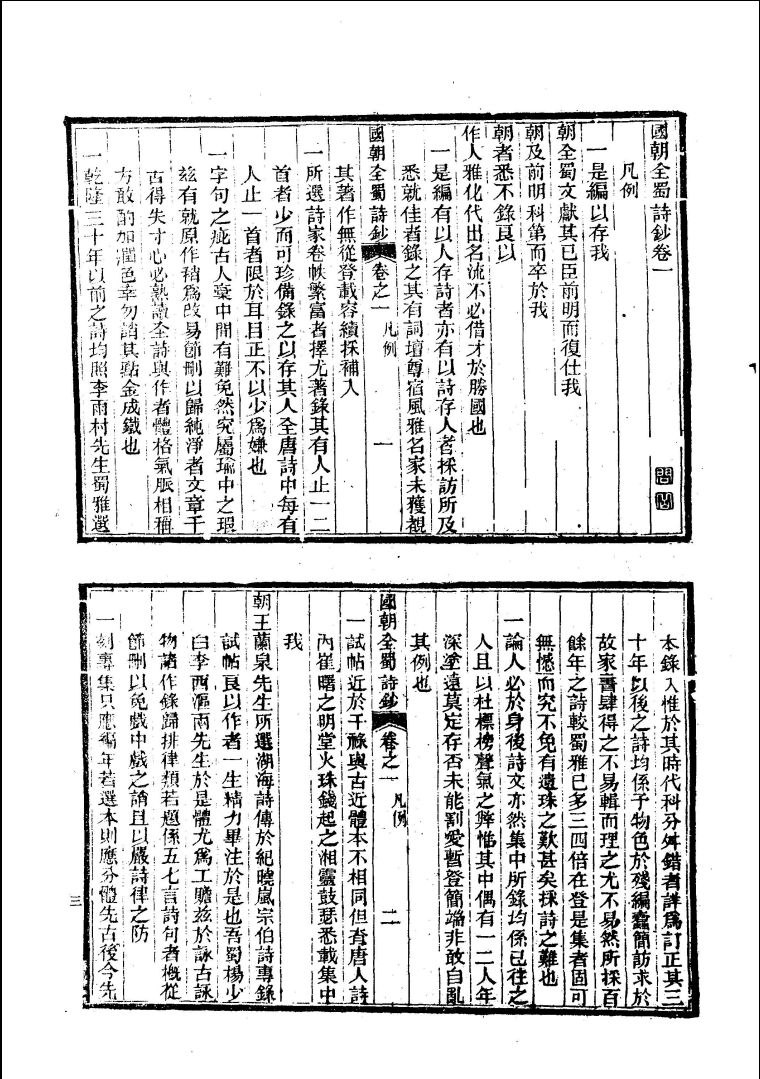 國朝全蜀詩鈔卷一
凡例
一是編以存我
朝全蜀文獻其已臣前明而復仕我
朝及前明科第而卒於我
朝者悉不錄良以
作人雅化代出名流不必借才於勝國也
一是編有以人存詩者亦有以詩存人者採訪所及
悉就佳者錄之其有詞壇尊宿風雅名家未獲覩
國朝全蜀詩鈔 卷之一 凡例 一
其著作無從登載容續採補入
一所選詩家卷帙繁富者擇尤著錄其有人止一二
首者少而可珍備錄之以存其人全唐詩中每有
人止一首者限於耳目正不以少爲嫌也
一字句之疵古人棄中間有難免然究屬瑜中之瑕
茲有就原作稍爲改易節刪以歸純淨者文章千
古得失寸心必熟讀全詩與作者體格氣脈相稱
方敢酌加潤色幸勿誚其點金成鐵也
一乾隆三十年以前之詩均照李雨村先生蜀雅選
本錄入惟於其時代科分舛錯者詳爲訂正其三
十年以後之詩均係予物色於殘編蠹簡訪求於
故家書肆得之不易輯而理之尤不易然所採百
餘年之詩較蜀雅已多三四倍在登是集者固可
無憾而究不免有遺珠之歎甚矣採詩之難也
一論人必於身後詩文亦然集中所錄均係已往之
人且以杜標榜聲氣之弊惟其中偶有一二人年
深塗遠莫定存否未能割愛暫登簡端非敢自亂
其例也
國朝全蜀詩鈔 卷之一 凡例 二
一試帖近於干祿與古近體本不相同但考唐人詩
內崔曙之明堂火珠錢起之湘靈鼓瑟悉載集中
我
朝王蘭泉先生所選湖海詩傳於紀曉嵐宗伯詩專錄
試帖良以作者一生精力畢注於是也吾蜀楊少
白李西漚兩先生於是體尤爲工贍茲於詠古詠
物諸作錄歸排律類若題係五七言詩句者概從
節刪以免戲中戲之誚且以嚴詩律之防
一刻專集只應編年若選本則應分體先古後今先
三